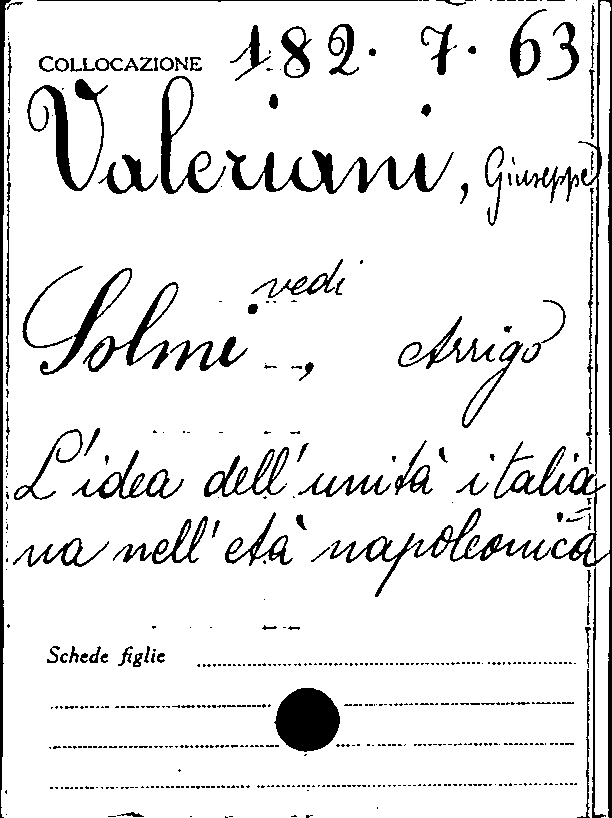 COLLOCAZIONE 182. 7. 63
Valeriani, Giuseppe
vedi
Solmi, Arrigo
L'idea dell'unità italia=
na nell'età napoleonica
Schede figlie